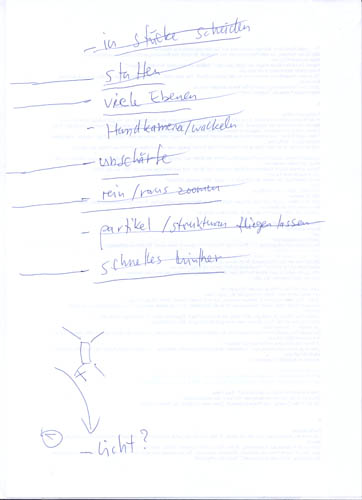 - in stücke schneiden
statten
viele Ebenen
- Handkamera/wackeln
unschärfe
rein/raus zoomen
- partikel/strukturen fliegen lassen
schnelles
- Licht?